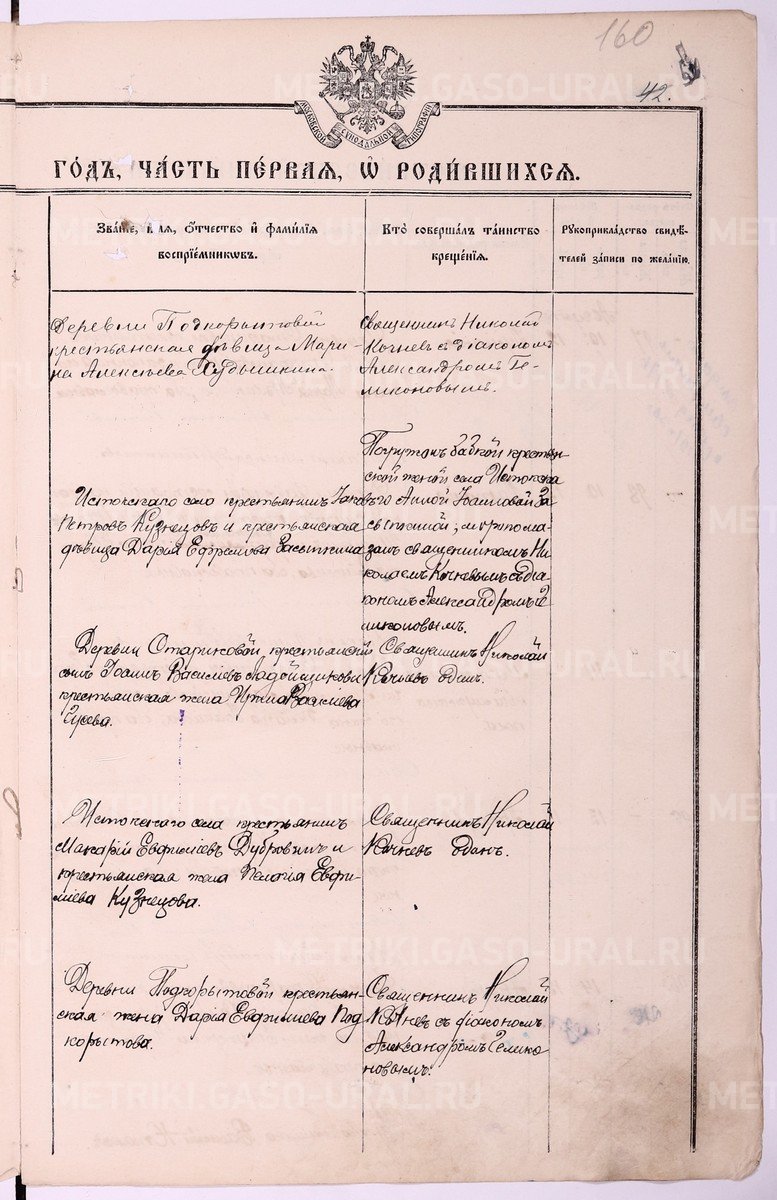 160
42.
МОСКОВСКОЙ СѴНОДАЛЬНОЙ ТИПОГРАФІИ
ГОДЪ, ЧАСТЬ ПЕРВАЯ, Ѡ РОДИВШИХСЯ.
Званіе, имя, отчество и фамилія
воспріемниковъ.
Кто совершалъ таинство
крещенія.
Рукоприкладство свидѣ-
телей записи по желанію.
Деревни Подкорытовой
крестьянская дѣвица Мари-
на Алексѣева Худышкина.
Священникъ Николай
Кочневъ съ діакономъ
Александромъ Ге-
ликоновымъ.
Истокскаго села крестьянинъ Іаковъ
Петровъ Кузнецовъ и крестьянская
дѣвица Дарія Ефремова Засыпкина
Погружонъ бабкой крестьян-
ской женой села Истокска
го Анной Іоанновой За
сыпкиной; мѵропома-
занъ священникомъ Ни
колаемъ Кочневымъ съ діа
кономъ Александромъ Ге
ликоновымъ.
Деревни Стариковой крестьянскій
сынъ Іоаннъ Василіевъ
крестьянская жена Ирина Василіева
Гусева.
Священникъ Николай
Кочневъ одинъ.
Истокскаго села крестьянинъ
Макарій Евфиміевъ Дубровинъ и
крестьянская жена Пелагія Евфи-
міева Кузнецова.
Священникъ Николай
Кочневъ одинъ.
Деревни Подкорытовой крестьян-
ская жена Дарія Евфиміева Под
корытова.
Священникъ Николай
Кочневъ съ діакономъ
Александромъ Гелико
новымъ.
METRIKI.GASO-URAL.RU